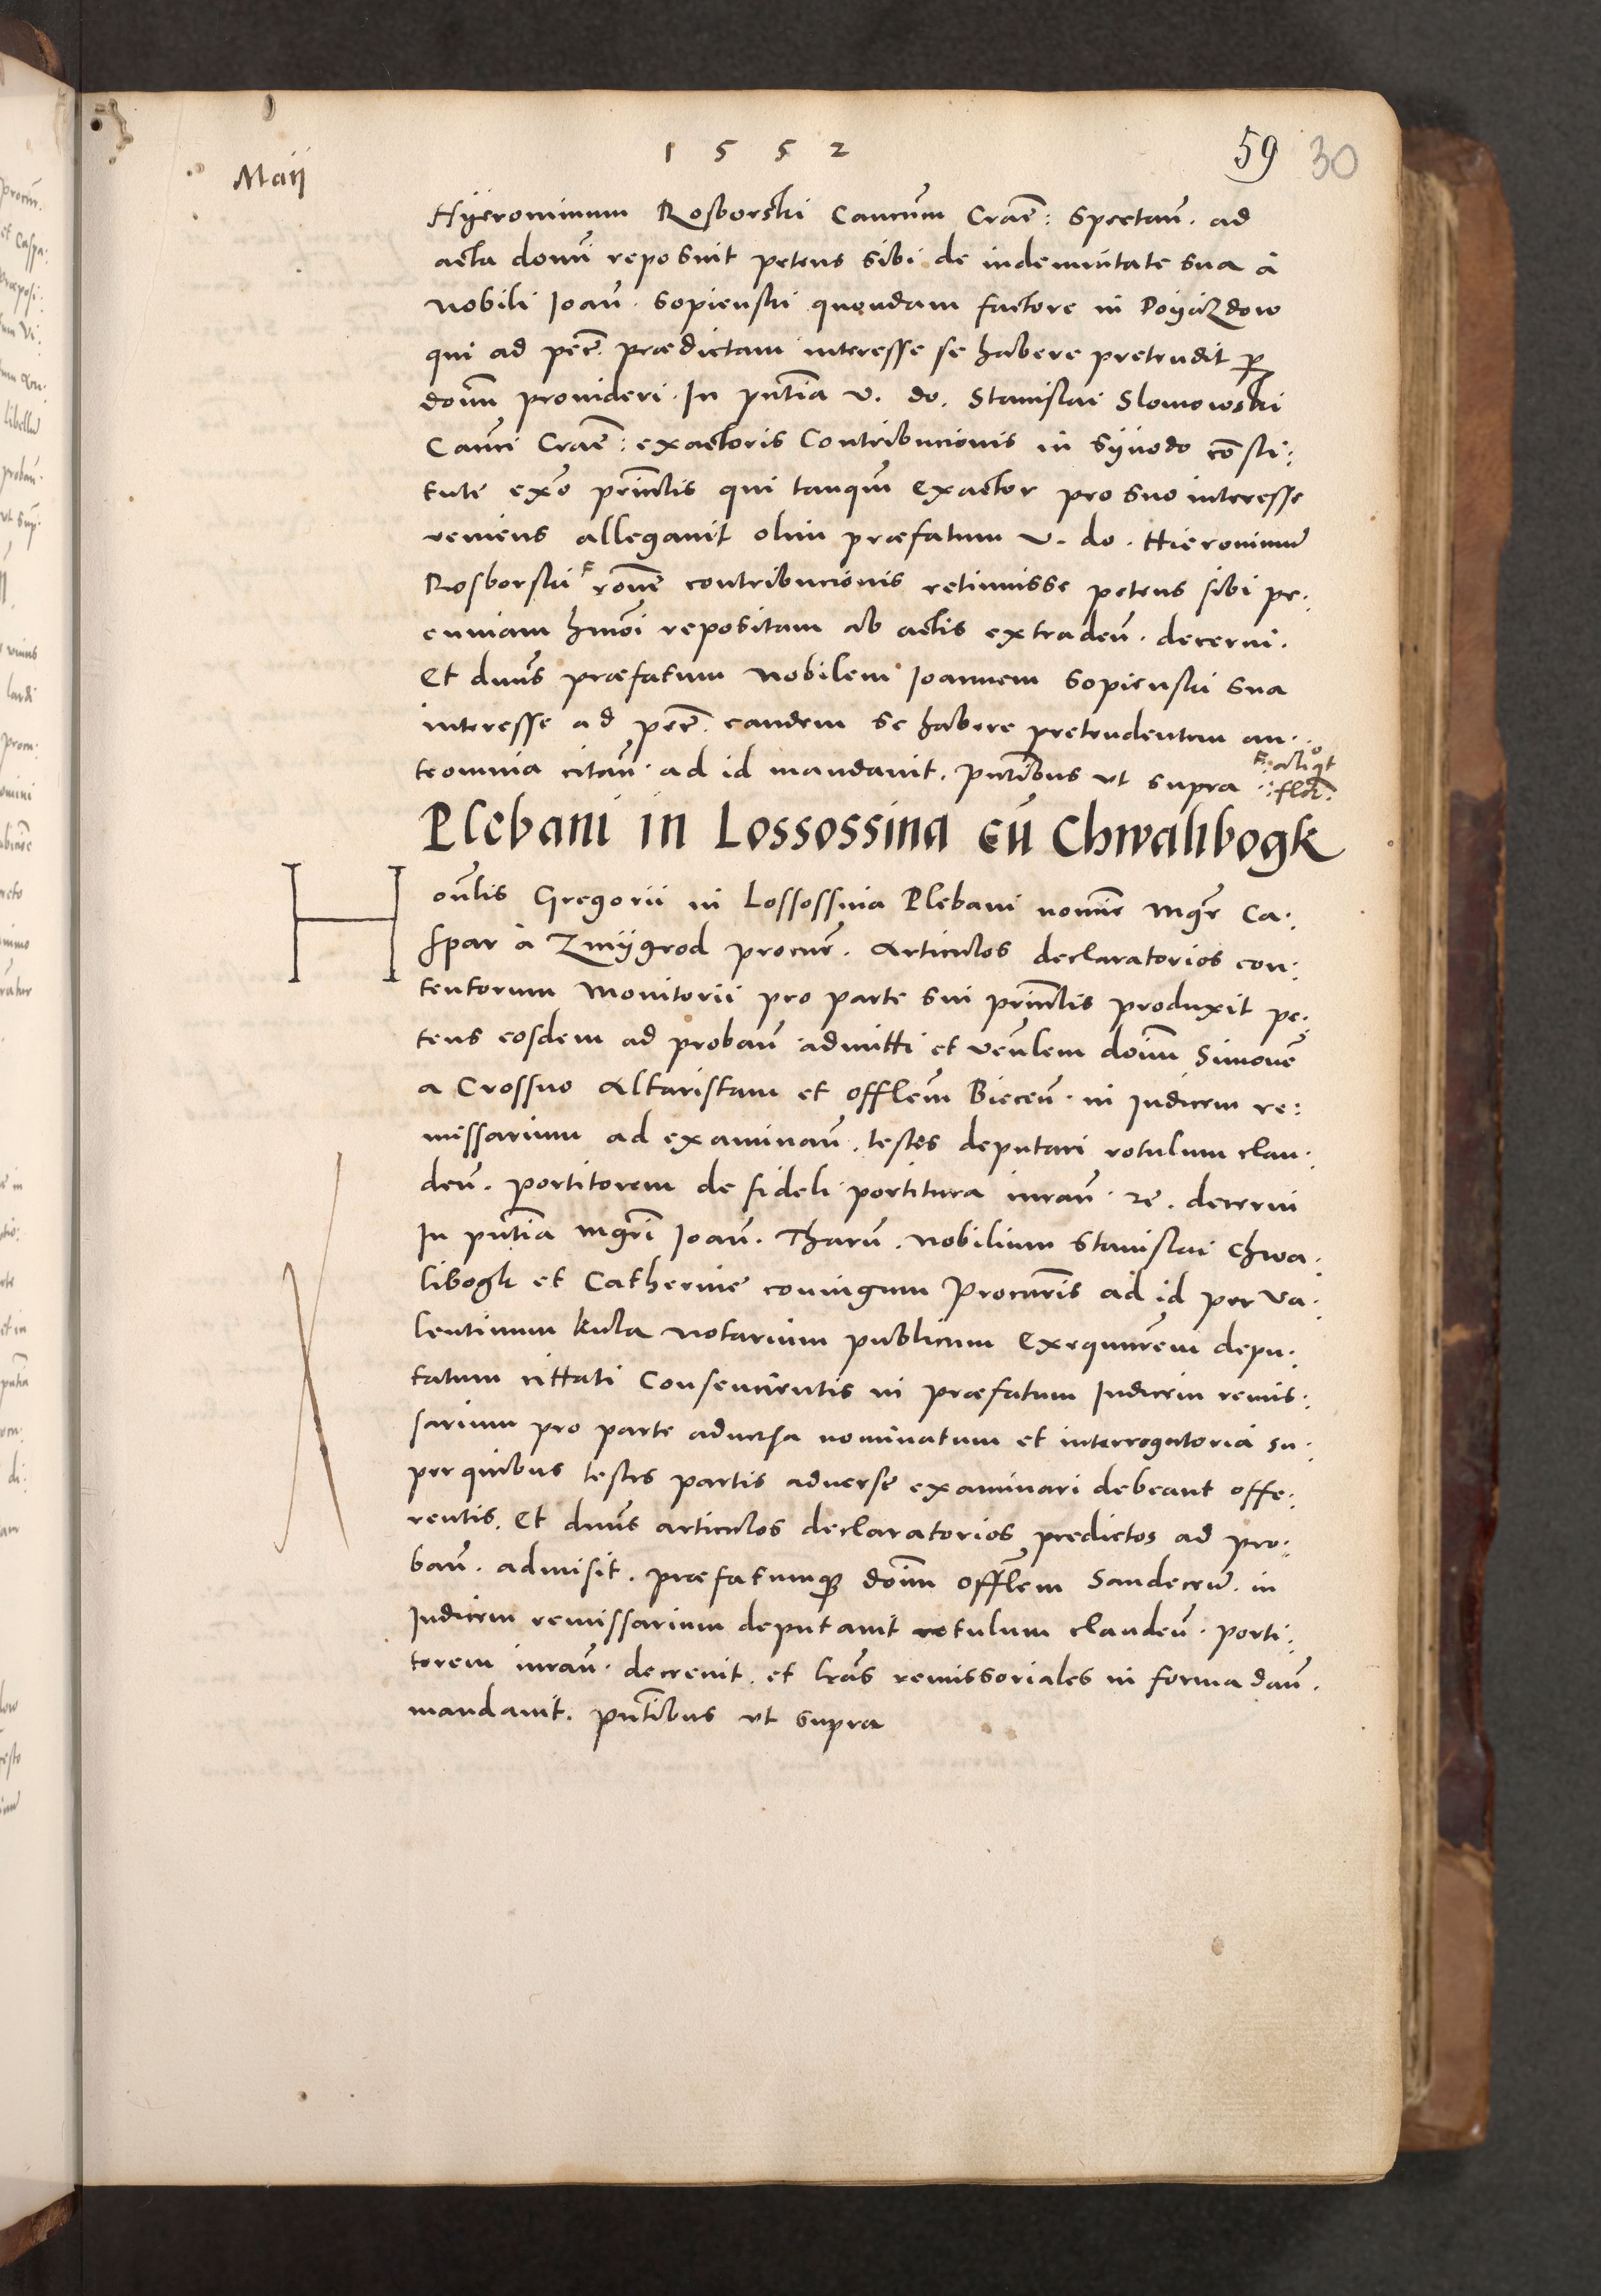 1 5 5 2
59 30
Maij
Hÿeronimum Rosborski Cancum Craē: spectañ. ad
acta domi reposuit petens sibi de indemnitate sua à
nobili Joañ. Sopienski quondam factore in
qui ad pecē. prædictam interesse se habere pretendit per
doīm prouideri. In pñtia v. do. Stanislai Slomowski
Canci Craē: exactoris Contribucionis in sÿnodo consti:
tute exño prīnlis qui tanqm̄ exactor pro suo interesse
veniens allegauit olim præfatum v. do. Hieronimū
Rosborski F rōne contribucionis retinuisse petens sibi pe:
cuniam hmōi repositam ab actis extradeñ. decerni.
Et dnūs præfatum nobilem Joannem Sopienski sua
interesse ad pecē. eandem se habere pretendentem an:
teomnia citañ. ad id mandauit. pñtibus vt supra F: aliqͦt
:flor:
Plebani in Lossossina cū Chwalibogk
Honlis Gregorii in Lossossina Plebani nomīe mgr̄ Ca:
spar à Zmÿgrod procur̄. Articulos declaratorios con:
tentorum Monitorii pro parte sui prīnlis produxit pe:
tens eosdem ad probañ admitti et venlem doīm Simonē
a Crossno Altaristam et offlem̄ Bieceñ. in Judicem re:
missarium ad examinañ. testes deputari rotulum clau:
deñ. portitorem de fideli portitura iurañ. rē. decerni
In pñtia mgr̄i Joañ. Tharñ. nobilium Stanislai Chwa:
libogk et Catherine coniugum Procur̄is ad id per Va:
lentinum kula notarium publicum Exequutrem̄ depu:
tatum cittati Consencientis in præfatum Judicem remis:
sarium pro parte aduersa nominatum et interrogatoria su:
per quibus testes partis aduerse examinari debeant offe:
rentis. Et dnūs articulos declaratorios predictos ad pro:
bañ. admisit. præfatumqȝ doīm offlem̄ Sandeceñ. in
Judicem remissarium deputauit rotulum claudeñ. porti:
torem iurañ. decreuit. et lrās remissoriales in forma dañ.
mandauit. pñtibus vt supra